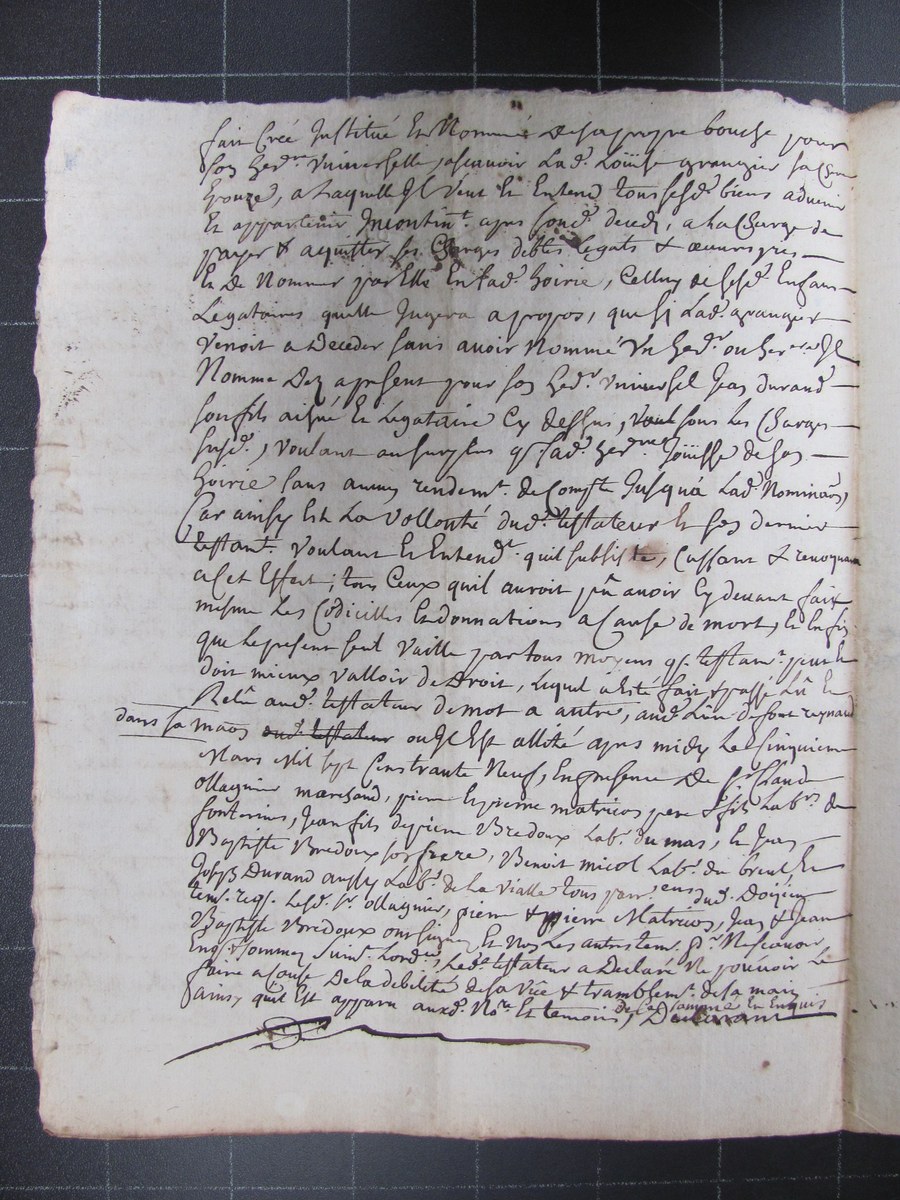 fait Créé Institué Et Nommé De sa propre bouche pour
Son hedr. Universelle, ascavoir Lad. Loüise granger sa chere
Epouze, a Laquelle Il Veut Et Entend tous sesd. biens advenir
Et appartenir Incontint. apres sond. deceds, a La Charge de
payer & aquitter ses Charges debtes Legats & œuvres pies
Et De Nommer par Elle En sad. hoirie, Celluy de sesd. Enfans
Legataires quelle Jugera apropos, que si Lad. granger
Venoit a Deceder sans avoir Nommé Un hedr. ou here. Il
Nomme Dez apresent pour son hedr. Universel Jean durand
son fils aisné Et Légataire Cy dessus, sous Les Charges
susd., Voulant au surplus q. sad. Joüisse de son
hoirie sans aucun rendemt. de Compte Jusqua Lad. Nominaõn,
Car ainsy Est La Vollonté dud. testateur Et son dernier
testamt. Voulant Et Entendt. quil subsiste, Cassant & revoquant
a Cet Effect, tous Ceux quil auroit pû avoir Cy devant fait
mesme Les Codicilles Et donnations a Cause de mort, Et Enfin
que Le present seul Vaille par tous moyens q. testamt. peut Et
doit mieux Valloir de Droit, Lequel a Esté fait & passé Lû Et
Relû aud. testateur de mot a autre, aud. Lieu de font reynaud
dans sa maõn aud. testateur ou Il Est allité apres midy Le Cinquieme
Mars Mil sept Cens trante Neuf, En presence De sr. Claude
ollagnier marchand, pierre Et pierre matricon pere & fils Labrs. de
Jean fils de pierre Bredoux Labr. du mas, Et Jean
Baptiste Bredoux son frere, Benoit micol Labr. du breul Et
Joseph Durand aussy Labr. de La Vialle tous
temˢ. reqs. Lesd. sr. ollagnier, pierre & pierre Matricon, Jean & Jean
Baptiste Bredoux ont signé Et Non Les autres tem. pr. Ne scavoir
Enqs. & sommez suivt. Lordce., Led. testateur a Declaré Ne pouvoir Le
faire a Cause De la debilité de sa Vüe & tramblemt. de sa main
ainsy quil Est apparu auxd. Nore. Et temoins, de Ce sommé Et Enquis